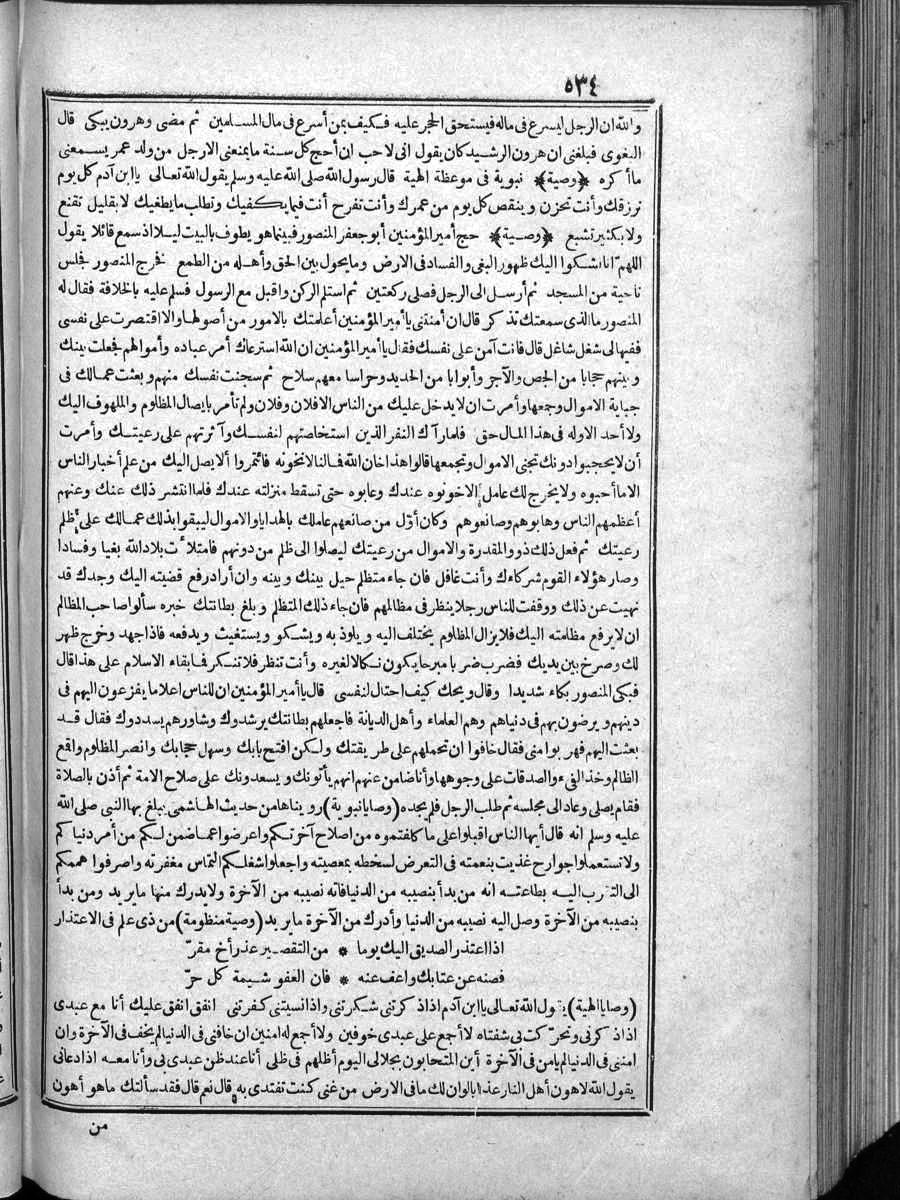 ٥٣٤
والله ان الرجل ليسرع فى ماله فيستحق الحجر عليه فكيف بمن أسرع فى مال المسلمين ثم مضى وهرون يبكى قال
البغوى فبلغنى ان هرون الرشيد كان يقول انى لاحب ان أحج كل سنة ما يمنعنى الارجل من ولد عمر يسمعنى
ما أكره ﴿وصية﴾ نبوية فى موعظة الهية قال رسول الله صلى الله عليه وسلم يقول الله تعالى يا ابن آدم كل يوم
نرزقك وأنت تحزن وينقص كل يوم من عمرك وأنت تفرح أنت فيما يكفيك وتطلب ما يطغيك لا بقليل تقنع
ولا بكثير تشبع ﴿وصية﴾ حج أمير المؤمنين أبو جعفر المنصور فبينما هو يطوف بالبيت ليلا اذ سمع قائلا يقول
اللهم انا نشكوا اليك ظهور البغى والفساد فى الارض وما يحول بين الحق وأهله من الطمع فخرج المنصور فجلس
ناحية من المسجد ثم أرسل الى الرجل فصلى ركعتين ثم استلم الركن واقبل مع الرسول فسلم عليه بالخلافة فقال له
المنصور ما الذى سمعتك تذكر قال ان أمنتنى يا أمير المؤمنين أعلمتك بالامور من أصولها والا اقتصرت على نفسى
ففيها لى شغل شاغل قال فانت آمن على نفسك فقال يا أمير المؤمنين ان الله استرعاك أمر عباده وأموالهم فجعلت بينك
وبينهم حجابا من الجص والآجر وأبوابا من الحديد وحراسا معهم سلاح ثم سجنت نفسك منهم وبعثت عمالك فى
جباية الاموال وجمعها وأمرت ان لا يدخل عليك من الناس الافلان وفلان ولم تأمر بايصال المظلوم والملهوف اليك
ولا أحد الا وله فى هذا المال حق فلما رآك النفر الذين استخلصتهم لنفسك وآثرتهم على رعيتك وأمرت
أن لا يحجبوا دونك تجبى الاموال وتجمعها قالوا هذا خان الله فالنا لا نخونه فائتمروا ألا يصل اليك من علم أخبار الناس
الا ما أحبوه ولا يخرج لك عامل الاخونوه عندك وعابوه حتى تسقط منزلته عندك فلما انتشر ذلك عنك وعنهم
أعظمهم الناس وهابوهم وصانعوهم وكان أول من صانعهم عاملك بالهدايا والاموال ليبقوا بذلك عمالك على ظلم
رعيتك ثم فعل ذلك ذوو المقدرة والاموال من رعيتك ليصلوا الى ظلم من دونهم فامتلأت بلاد الله بغيا وفسادا
وصار هؤلاء القوم شركاءك وأنت غافل فان جاء متظلم حيل بينك وبينه وان أراد رفع قضيته اليك وجدك قد
نهيت عن ذلك ووقفت للناس رجلا ينظر فى مظالمهم فان جاء ذلك المتظلم وبلغ بطانتك خبره سألوا صاحب المظالم
ان لا يرفع مظلمته اليك فلا يزال المظلوم يختلف اليه ويلوذ به ويشكو ويستغيث ويدفعه فاذا جهد وخرج ظهر
لك وصرخ بين يديك فضرب ضربا مبرحا يكون نكالا لغيره وأنت تنظر فلا تنكر فابقاء الاسلام على هذا قال
فبكى المنصور بكاء شديدا وقال ويحك كيف احتال لنفسى قال يا أمير المؤمنين ان للناس اعلاما يفزعون اليهم فى
دينهم ويرضون بهم فى دنياهم وهم العلماء وأهل الديانة فاجعلهم بطانتك يرشدوك وشاورهم يسددوك فقال قد
بعثت اليهم فهربوا منى فقال خافوا ان تحملهم على طريقتك ولكن افتح بابك وسهل حجابك وانصر المظلوم واقمع
الظالم وخذ الفىء والصدقات على وجوهها وأنا ضامن عنهم انهم يأتونك ويسعدونك على صلاح الامة ثم أذن بالصلاة
فقام يصلى وعاد الى مجلسه ثم طلب الرجل فلم يجده (وصايا نبوية) رويناها من حديث الهاشمى يبلغ بها النبى صلى الله
عليه وسلم انه قال أيها الناس اقبلوا على ما كلفتموه من اصلاح آخرتكم واعرضوا عما ضمن لكم من أمر دنياكم
ولا تستعملوا جوارح غذيت بنعمته فى التعرض لسخطه بمعصيته واجعلوا شغلكم التماس مغفرته واصرفوا هممكم
الى التقرب اليه بطاعته انه من بدأ بنصيبه من الدنيا فاته نصيبه من الآخرة ولا يدرك منها ما يريد ومن بدأ
بنصيبه من الآخرة وصل اليه نصيبه من الدنيا وأدرك من الآخرة ما يريد (وصية منظومة) من ذى علم فى الاعتذار
اذا اعتذر الصديق اليك يوما * من التقصير عذر أخ مقرّ
فصنه عن عتابك واعف عنه * فان العفو شيمة كل حرّ
(وصايا الهية) يقول الله تعالى يا ابن آدم اذا ذكرتنى شكرتنى واذا نسيتنى كفرتنى انفق انفق عليك أنا مع عبدى
اذا ذكرنى وتحرّكت بى شفتاه لا أجمع على عبدى خوفين ولا أجمع له امنين ان خافنى فى الدنيا لم يخف فى الآخرة وان
امننى فى الدنيا لم يامن فى الآخرة أين المتحابون بجلالى اليوم أظلهم فى ظلى أنا عند ظن عبدى بى وأنا معه اذا دعانى
يقول الله لاهون أهل النار عذابا لو ان لك ما فى الارض من غنى كنت تفتدى به قال نعم قال فقد سألتك ما هو أهون
من